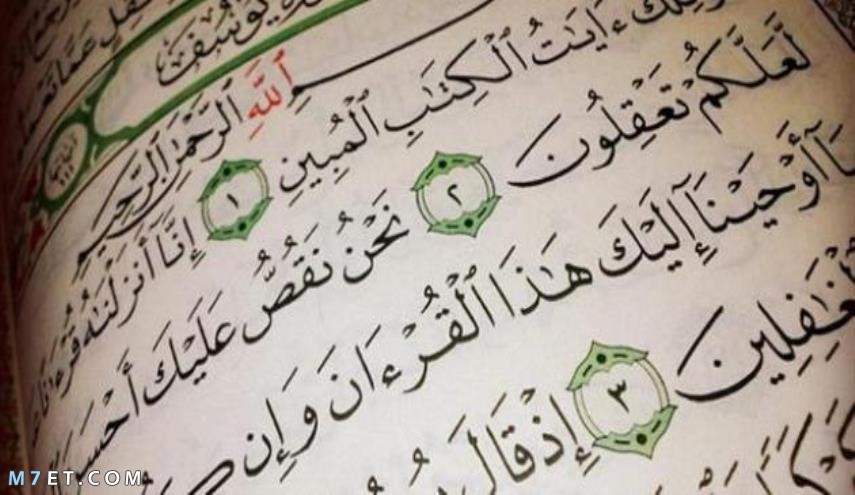 يُوسُفَ
ٱللَّهِ ٱلرَّحْمَٰنِ ٱلرَّحِيمِ
ءَايَٰتُ ٱلْكِتَٰبِ ٱلْمُبِينِ ١ إِنَّآ أَنزَلْنَٰهُ قُرْءَٰنًا
لَّعَلَّكُمْ تَعْقِلُونَ ٢ نَحْنُ نَقُصُّ عَلَيْكَ أَحْسَنَ
أَوْحَيْنَآ إِلَيْكَ هَٰذَا ٱلْقُرْءَانَ وَإِن
ٱلْغَٰفِلِينَ ٣ إِذْ قَالَ
M7ET.COM